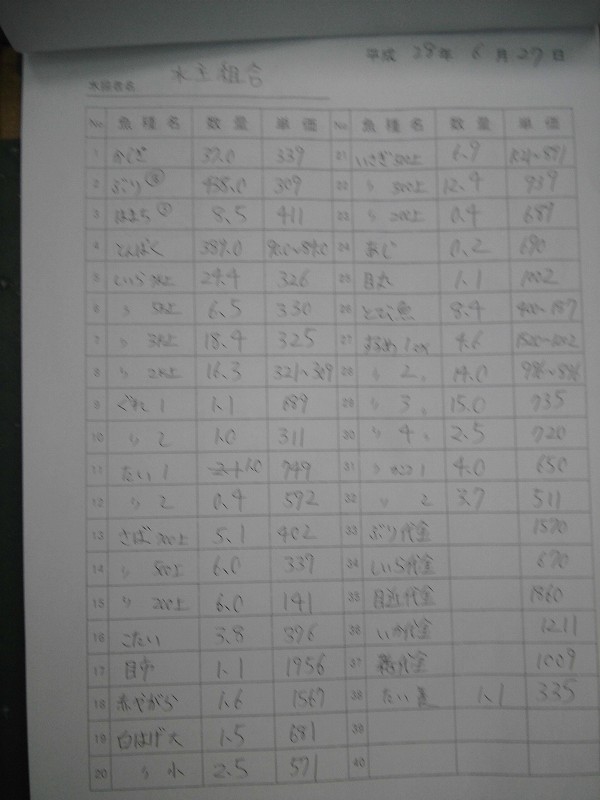 平成 28年 6月27日
水揚者名 水主組合
No. 魚種名 数量 単価 No. 魚種名 数量 単価
1 かじき 37.0 339 21 いさぎ300上 6.9 ~891
2 ぶり 458.0 309 22 〃 300上 12.4 939
3 はまち 8.5 411 23 〃 200上 0.4 689
4 てんぱく 389.0 24 あじ 0.2 690
5 しいら 24.4 326 25 目太 1.1 1002
6 〃 5K上 6.5 330 26 とび魚 8.4 400~187
7 〃 3K上 18.4 325 27 するめ 4.6 1500~1002
8 〃 2K上 16.3 321~309 28 〃 2 14.0
9 ぐれ 1 1.1 689 29 〃 3 15.0 735
10 〃 2 1.0 311 30 〃 4 2.5 720
11 たい 1 1.0 749 31 〃 1 4.0 650
12 〃 2 0.4 592 32 〃 2 3.7 511
13 さば 700上 5.1 402 33 ぶり代金 1570
14 〃 500上 6.0 339 34 しいら代金 670
15 〃 200上 6.0 141 35 目近代金 1860
16 こたい 3.8 396 36 いか代金 1211
17 目 1.1 1956 37 代金 1009
18 赤やがら 1.6 1567 38 たい 1.1 335
19 白はげ大 1.5 681 39
20 〃 小 2.5 571 40